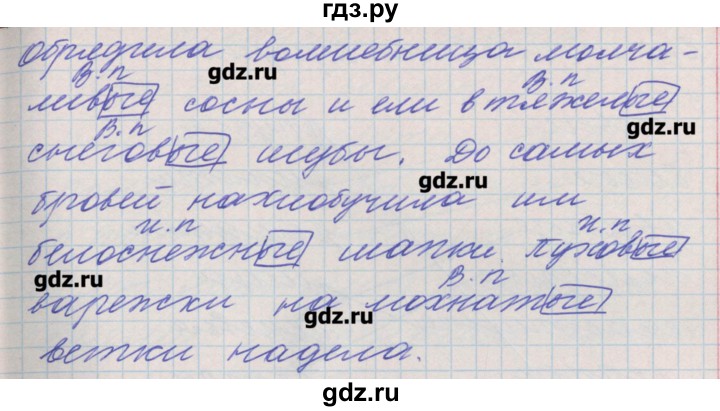 гдз.ру
обрядила волшебница молча-
В.п В.п
ливые сосны и ели в тяжелые
gdz.ru
В.п
gdz.ru
снеговые шубы. До самых
gdz.ru
бровей нахлобучила им
и.п и.п
белоснежные шапки. Пуховые
gdz.ru В.п
варежки на мохнатые
gdz.ru
ветки надела.
gdz.ru